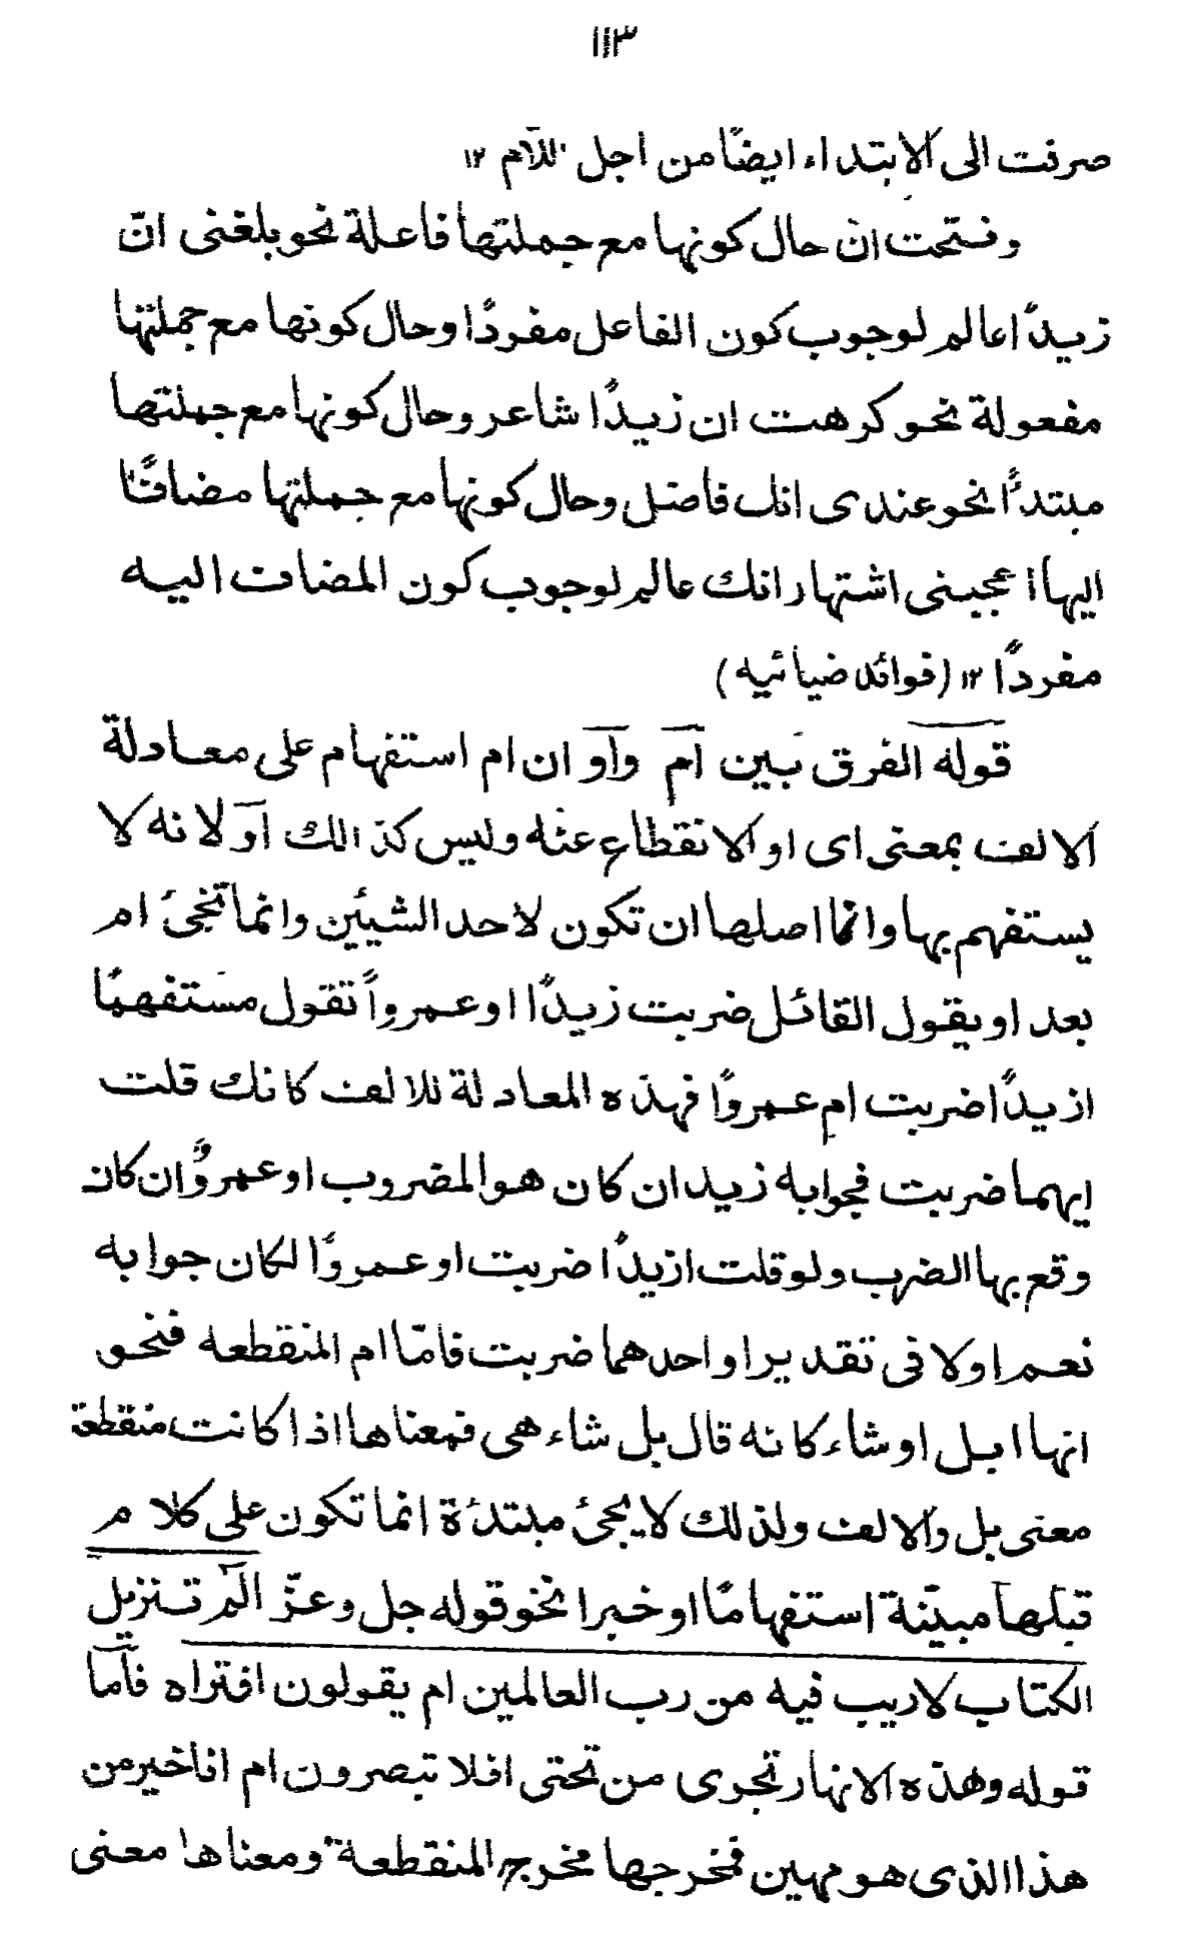 ١١٣
صرفت الى الابتداء ايضًا من اجل اللام ١٢
وفتحت ان حال كونها مع جملتها فاعلة نحو بلغنى انّ
زيدًا عالم لوجوب كون الفاعل مفردًا وحال كونها مع جملتها
مفعولة نحو كرهت ان زيدًا شاعر وحال كونها مع جملتها
مبتدأً نحو عندى انك فاضل وحال كونها مع جملتها مضافًا
اليها اعجبنى اشتهار انك عالم لوجوب كون المضاف اليه
مفردًا ١٢ (فوائد ضيائيه)
قوله الفرق بين اَم وَاَو ان ام استفهام على معادلة
الالف بمعنى اى او الانقطاع عنه وليس كذالك اَو لانه لا
يستفهم بها وانما اصلها ان تكون لاحد الشيئين وانما تجئ ام
بعد او يقول القائل ضربت زيدًا او عمرواً تقول مستفهمًا
ازيدًا ضربت ام عمروًا فهذه المعادلة للالف كانك قلت
ايهما ضربت فجوابه زيد ان كان هو المضروب او عمروٌ ان كان
وقع بها الضرب ولو قلت ازيدًا ضربت او عمروًا لكان جوابه
نعم او لا فى تقدير او احدهما ضربت فامّا ام المنقطعه فنحو
انها ابل او شاء كانه قال بل شاء هى فمعناها اذا كانت منقطعة
معنى بل والالف ولذلك لا يجئ مبتدئة انما تكون على كلام
قبلها مبيّنة استفهامًا او خبرا نحو قوله جل وعزّ الٓمٓ تنزيل
الكتاب لا ريب فيه من رب العالمين ام يقولون افتراه فاما
قوله وهذه الانهار تجرى من تحتى افلا تبصرون ام انا خير من
هذا الذى هو مهين فمخرجها مخرج المنقطعة ومعناها معنى